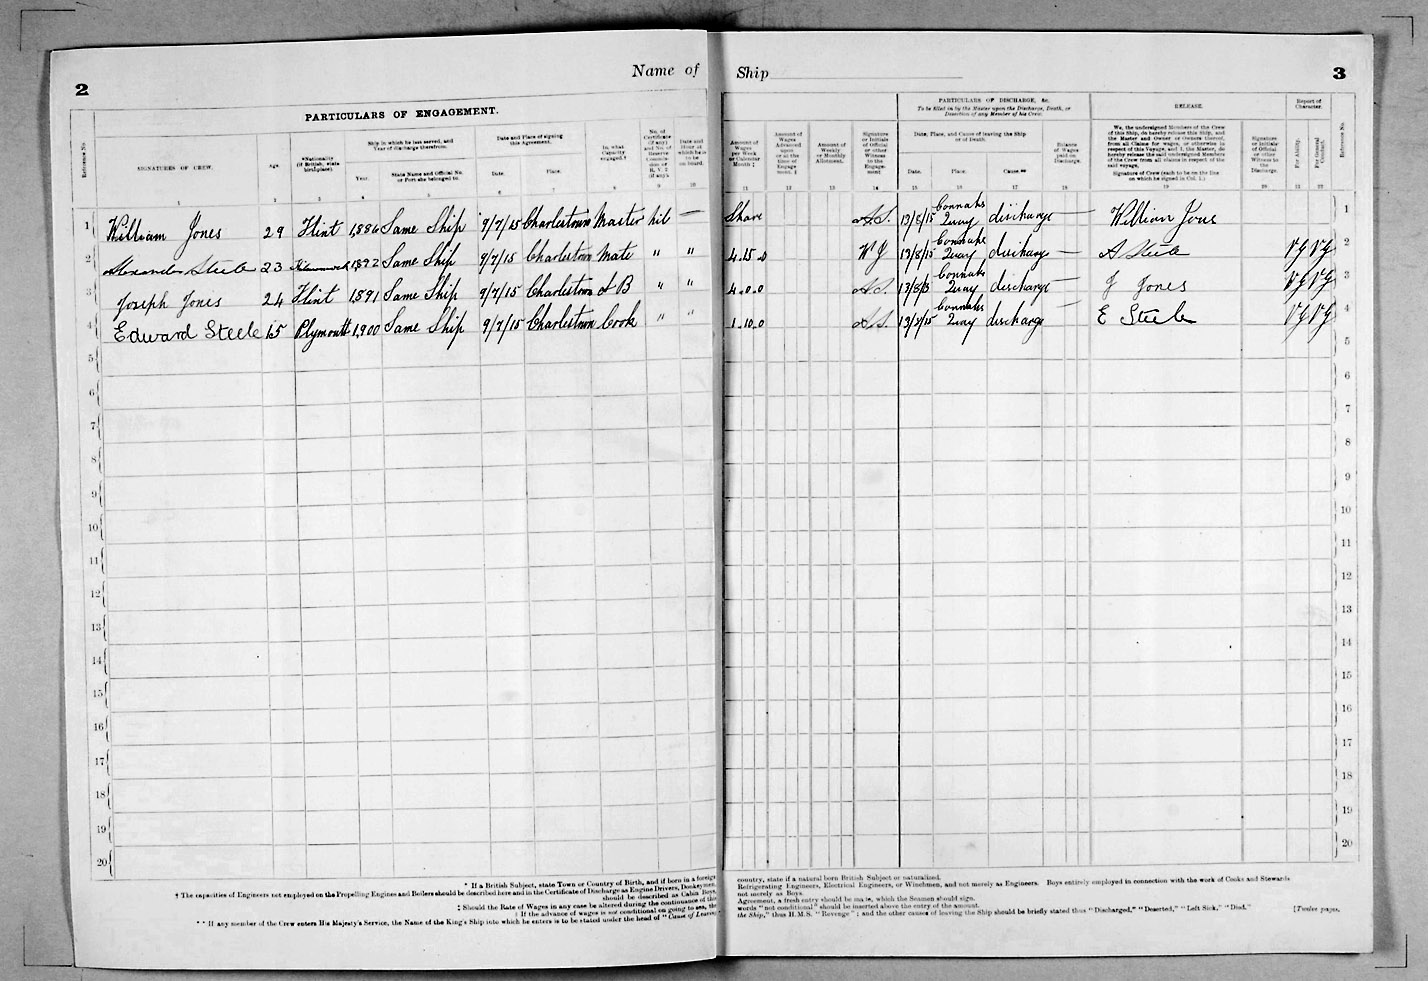 2
Name of Ship
3
PARTICULARS OF ENGAGEMENT.
PARTICULARS OF DISCHARGE, &c.
To be filled in by the Master upon the Discharge, Death, or Desertion of any Member of his Crew.
RELEASE.
Report of Character.
Reference No.
SIGNATURES OF CREW.
Age
*Nationality (if British, state birthplace).
Ship in which he last served, and Year of discharge therefrom.
Year.
State Name and Official No. or Port she belonged to.
Date and Place of signing this Agreement.
Date.
Place.
In what Capacity engaged.†
No. of Certificate (if any) and No. of Reserve Commission or R.V. 2 (if any).
Date and Hour at which he is to be on board.
Amount of Wages per Week or Calendar Month ‡
Amount of Wages Advanced upon or at the time of Engagement. ‡
Amount of Weekly or Monthly Allotment.
Signature or Initials of Official or other Witness to the Engagement
Date, Place, and Cause of leaving the Ship or of Death.
Date.
Place.
Cause.**
Balance of Wages paid on Discharge.
We, the undersigned Members of the Crew of this Ship, do hereby release this Ship, and the Master and Owner or Owners thereof, from all Claims for wages, or otherwise in respect of this Voyage; and I, the Master, do hereby release the said undersigned Members of the Crew from all claims in respect of the said voyage.
Signature of Crew (each to be on the line on which he signed in Col. 1.)
Signature or Initials of Official or other Witness to the Discharge.
For Ability.
For General Conduct.
Reference No.
1 2 3 4 5 6 7 8 9 10 11 12 13 14 15 16 17 18 19 20 21 22
1 William Jones 29 Flint 1886 Same Ship 9/7/15 Charlestown Master nil — Share A.S. 13/8/15 Connahs Quay discharge — William Jones 1
2 Alexander Steele 23 Kilmarnock 1892 Same Ship 9/7/15 Charlestown Mate " " 4.15.0 W J 13/8/15 Connahs Quay discharge — A Steele VG VG 2
3 Joseph Jones 24 Flint 1891 Same Ship 9/7/15 Charlestown A B " " 4.0.0 A.S. 13/8/15 Connahs Quay discharge — J Jones VG VG 3
4 Edward Steele 15 Plymouth 1900 Same Ship 9/7/15 Charlestown Cook " " 1.10.0 A.S. Connahs Quay discharge — E Steele VG VG 4
5 5
6 6
7 7
8 8
9 9
10 10
11 11
12 12
13 13
14 14
15 15
16 16
17 17
18 18
19 19
20 20
* If a British Subject, state Town or Country of Birth, and if born in a foreign country, state if a natural born British Subject or naturalised.
† The capacities of Engineers not employed on the Propelling Engines and Boilers should be described here and in the Certificate of Discharge as Engine Drivers, Donkeymen, Refrigerating Engineers, Electrical Engineers, or Winchmen, and not merely as Engineers. Boys entirely employed in connection with the work of Cooks and Stewards
should be described as Cabin Boys, not merely as Boys.
‡ Should the Rate of Wages in any case be altered during the continuance of this Agreement, a fresh entry should be made, which the Seamen should sign.
‡ If the advance of wages is not conditional on going to sea, the words "not conditional" should be inserted above the entry of the amount.
** If any member of the Crew enters His Majesty's Service, the Name of the King's Ship into which he enters is to be stated under the head of "Cause of Leaving the Ship," thus H.M.S. "Revenge"; and the other causes of leaving the Ship should be briefly stated thus "Discharged," "Deserted," "Left Sick," "Died."
[Twelve pages.